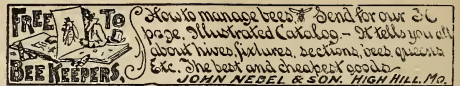 FREE TO
BEE KEEPERS.
How to manage bees. Send for our 36
page, Illustrated Catalog.- It tells you all
about hives, fixtures, sections, bees, queens
Etc. The best and cheapest goods
JOHN NEBEL & SON. HIGH HILL. MO.